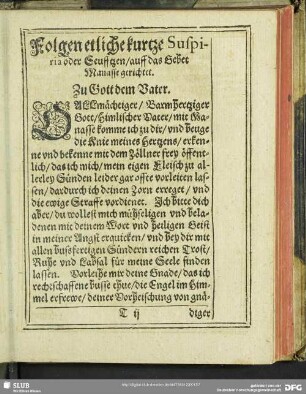 Folgen etliche kurtze Suspi-
ria oder Seufftzen/auff das Gebet
Manasse gerichtet.
Zu Gott dem Vater.
ALLmächtiger/ Barmhertziger
Gott/Himlischer Vater/ mit Ma-
nasse komme ich zu dir/ vnd beuge
die Knie meines Hertzens/ erken-
ne vnd bekenne mit dem Zöllner frey öffent-
lich/ das ich mich/ mein eigen Fleisch zu al-
lerley Sünden leider gar offte verleiten las-
sen/ dardurch ich deinen Zorn erreget/ vnd
die ewige Straffe verdienet. Ich bitte dich
aber/ du wollest mich mühseligen vnd bela-
denen mit deinem Wort vnd heiligen Geist
in meiner Angst erquicken/ vnd bey dir mit
allen bußfertigen Sündern reichen Trost/
Ruhe vnd Labsal für meine Seele finden
lassen. Verleihe mir deine Gnade/ das ich
rechtschaffene busse thue/ die Engel im Him-
mel erfrewe/ deiner Verheischung von gnä-
T ij
diger
SLUB